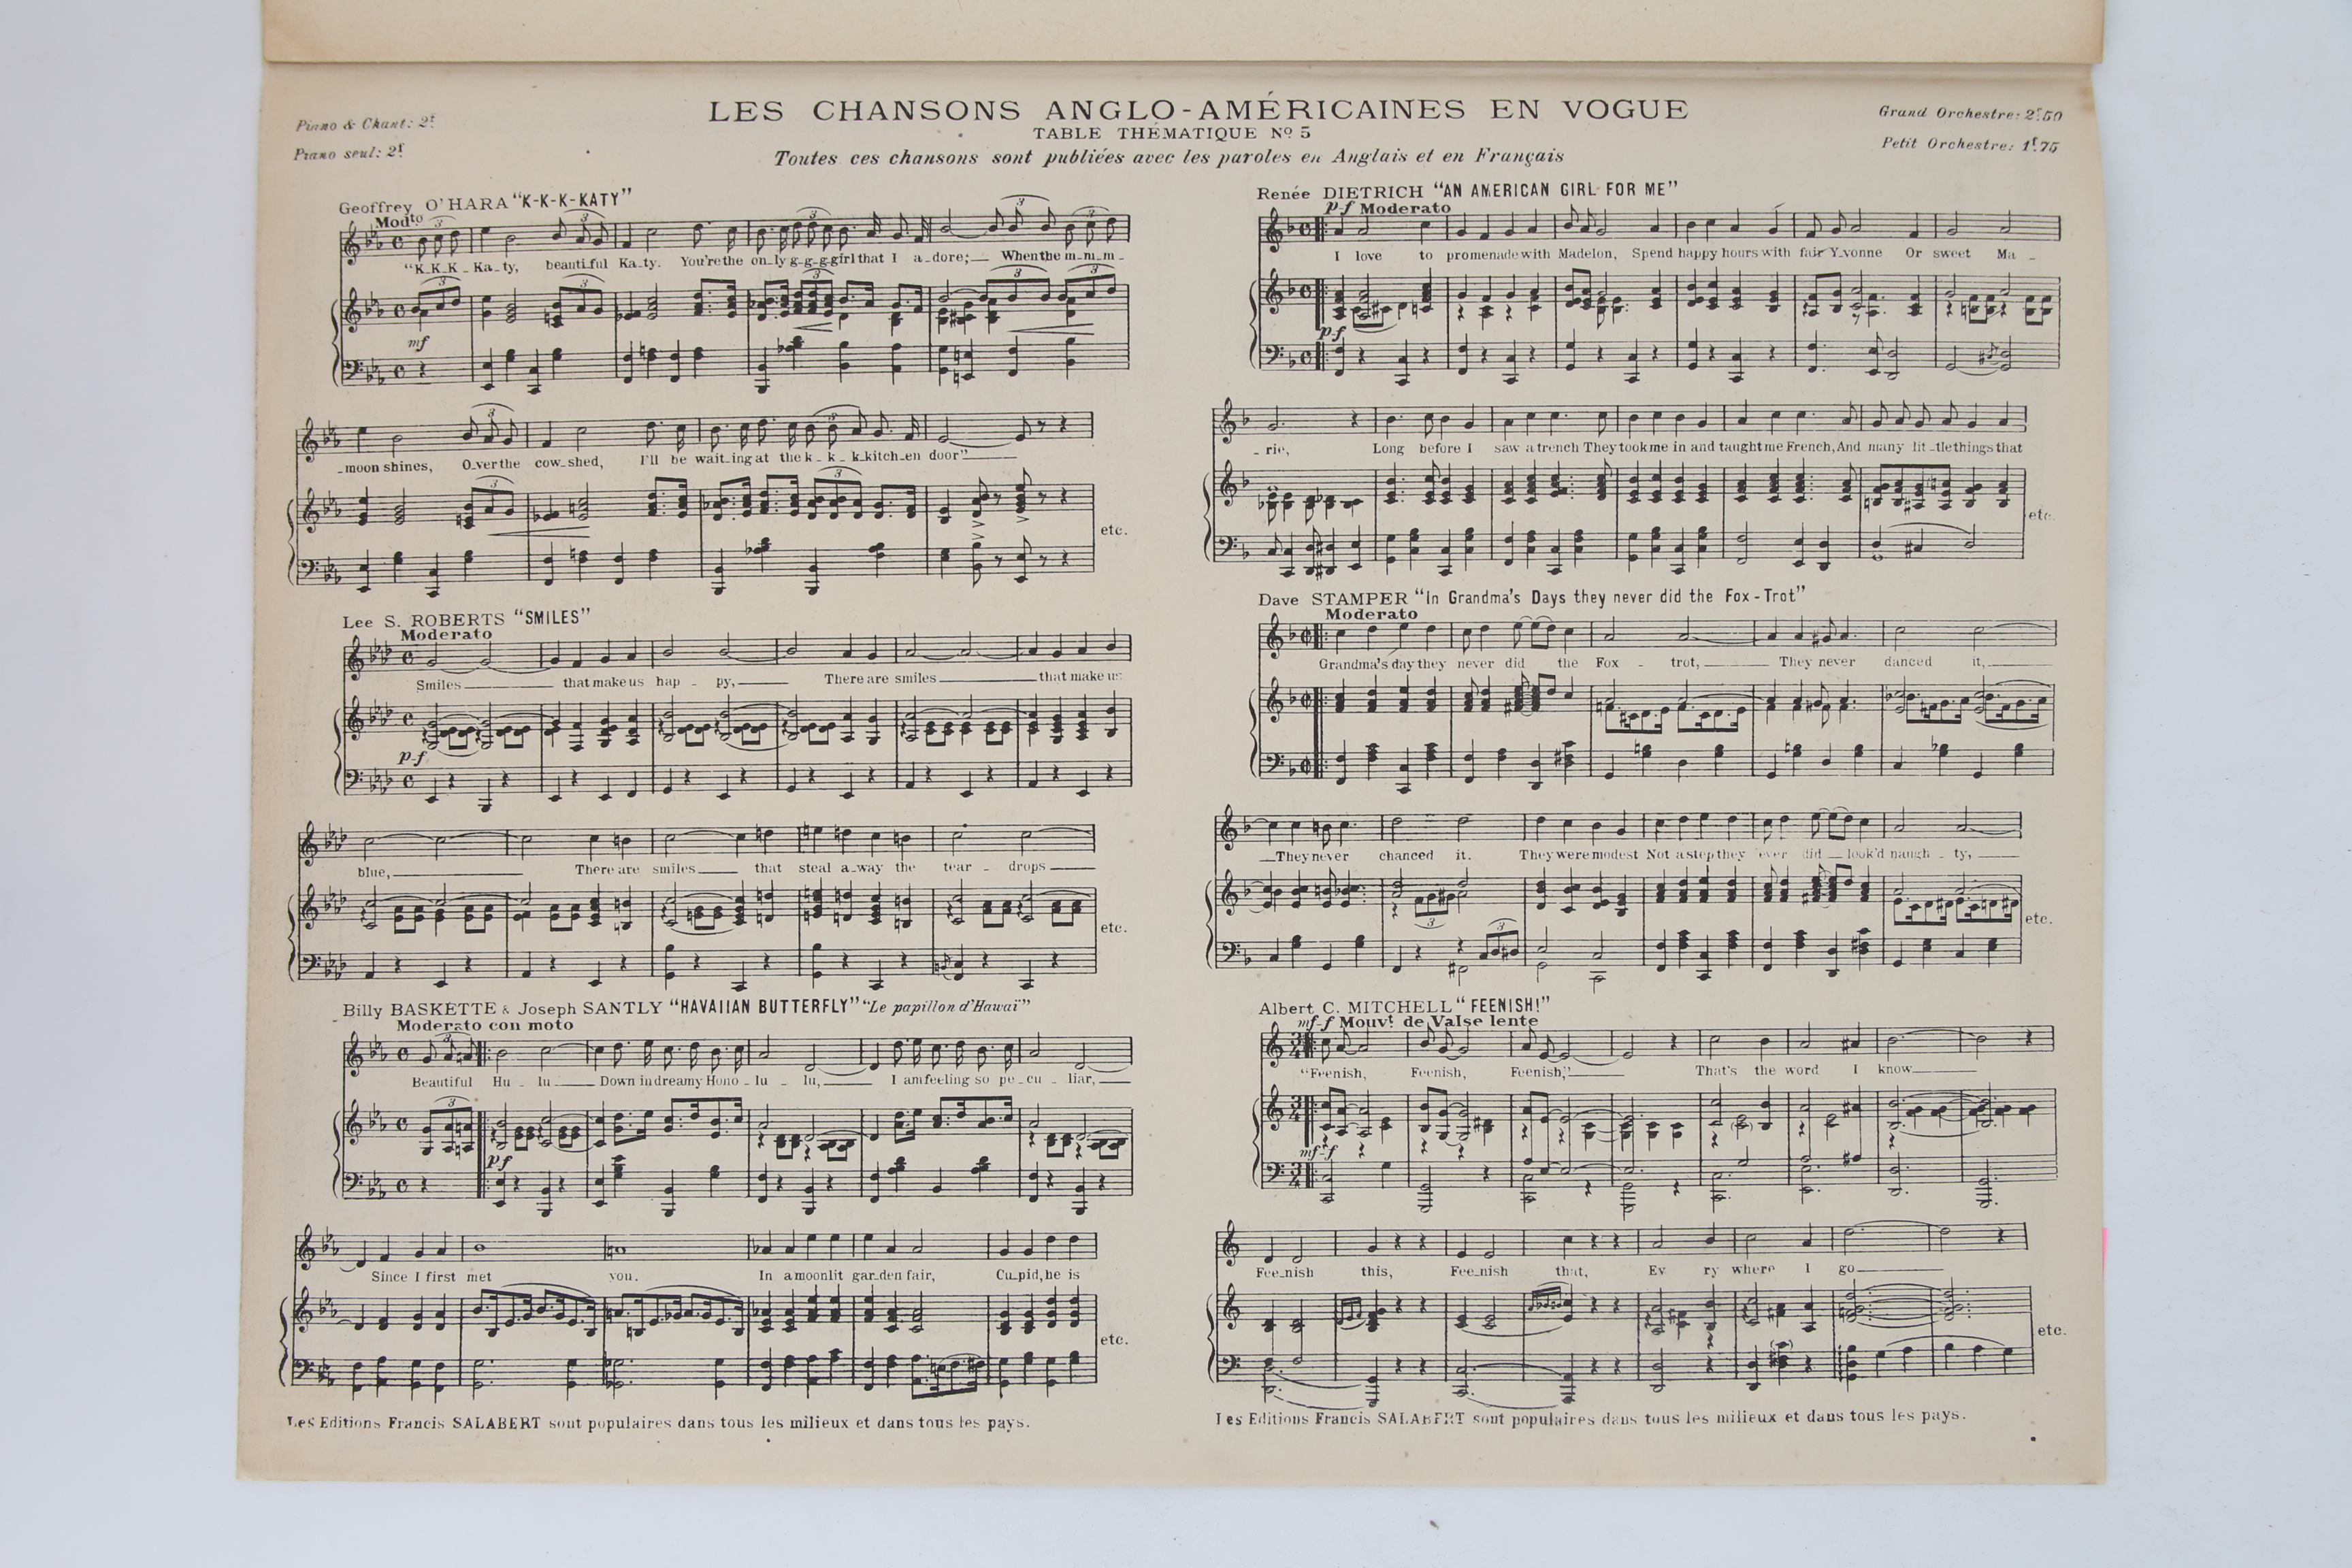 LES CHANSONS ANGLO-AMÉRICAINES EN VOGUE
TABLE THÉMATIQUE Nº 5
Toutes ces chansons sont publiées avec les paroles en Anglais et en Français
Piano & Chant: 2f
Piano seul: 2f
Grand Orchestre: 2f50
Petit Orchestre: 1f75
Geoffrey O'HARA "K-K-K-KATY"
Modto
"K-K-K-Ka-ty, beautiful Ka-ty. You're the on-ly g-g-g-girl that I a-dore; When the m-m-m-
mf
-moon shines, O-ver the cow-shed, I'll be wait-ing at the k-k-k-kitch-en door"
etc.
Lee S. ROBERTS "SMILES"
Moderato
Smiles that make us hap-py, There are smiles that make us
p-f
blue, There are smiles that steal a-way the tear-drops
etc.
Billy BASKETTE & Joseph SANTLY "HAVAIIAN BUTTERFLY" "Le papillon d'Hawaï"
Moderato con moto
Beautiful Hu-lu Down in dreamy Hono-lu-lu, I am feeling so pe-cu-liar,
p-f
Since I first met you. In a moonlit gar-den fair, Cu-pid, he is
etc.
Les Editions Francis SALABERT sont populaires dans tous les milieux et dans tous les pays.
Renée DIETRICH "AN AMERICAN GIRL FOR ME"
p-f Moderato
I love to promenade with Madelon, Spend happy hours with fair Y-vonne Or sweet Ma-
p-f
-rie, Long before I saw a trench They took me in and taught me French, And many lit-tle things that
etc.
Dave STAMPER "In Grandma's Days they never did the Fox-Trot"
Moderato
Grandma's day they never did the Fox-trot, They never danced it,
They never chanced it. They were modest Not a step they ever did look'd naugh-ty,
etc.
Albert C. MITCHELL "FEENISH!"
mf-f Mouvt de Valse lente
"Feenish, Feenish, Feenish," That's the word I know
mf-f
Fee-nish this, Fee-nish that, Ev ry where I go
etc.
Les Editions Francis SALABERT sont populaires dans tous les milieux et dans tous les pays.